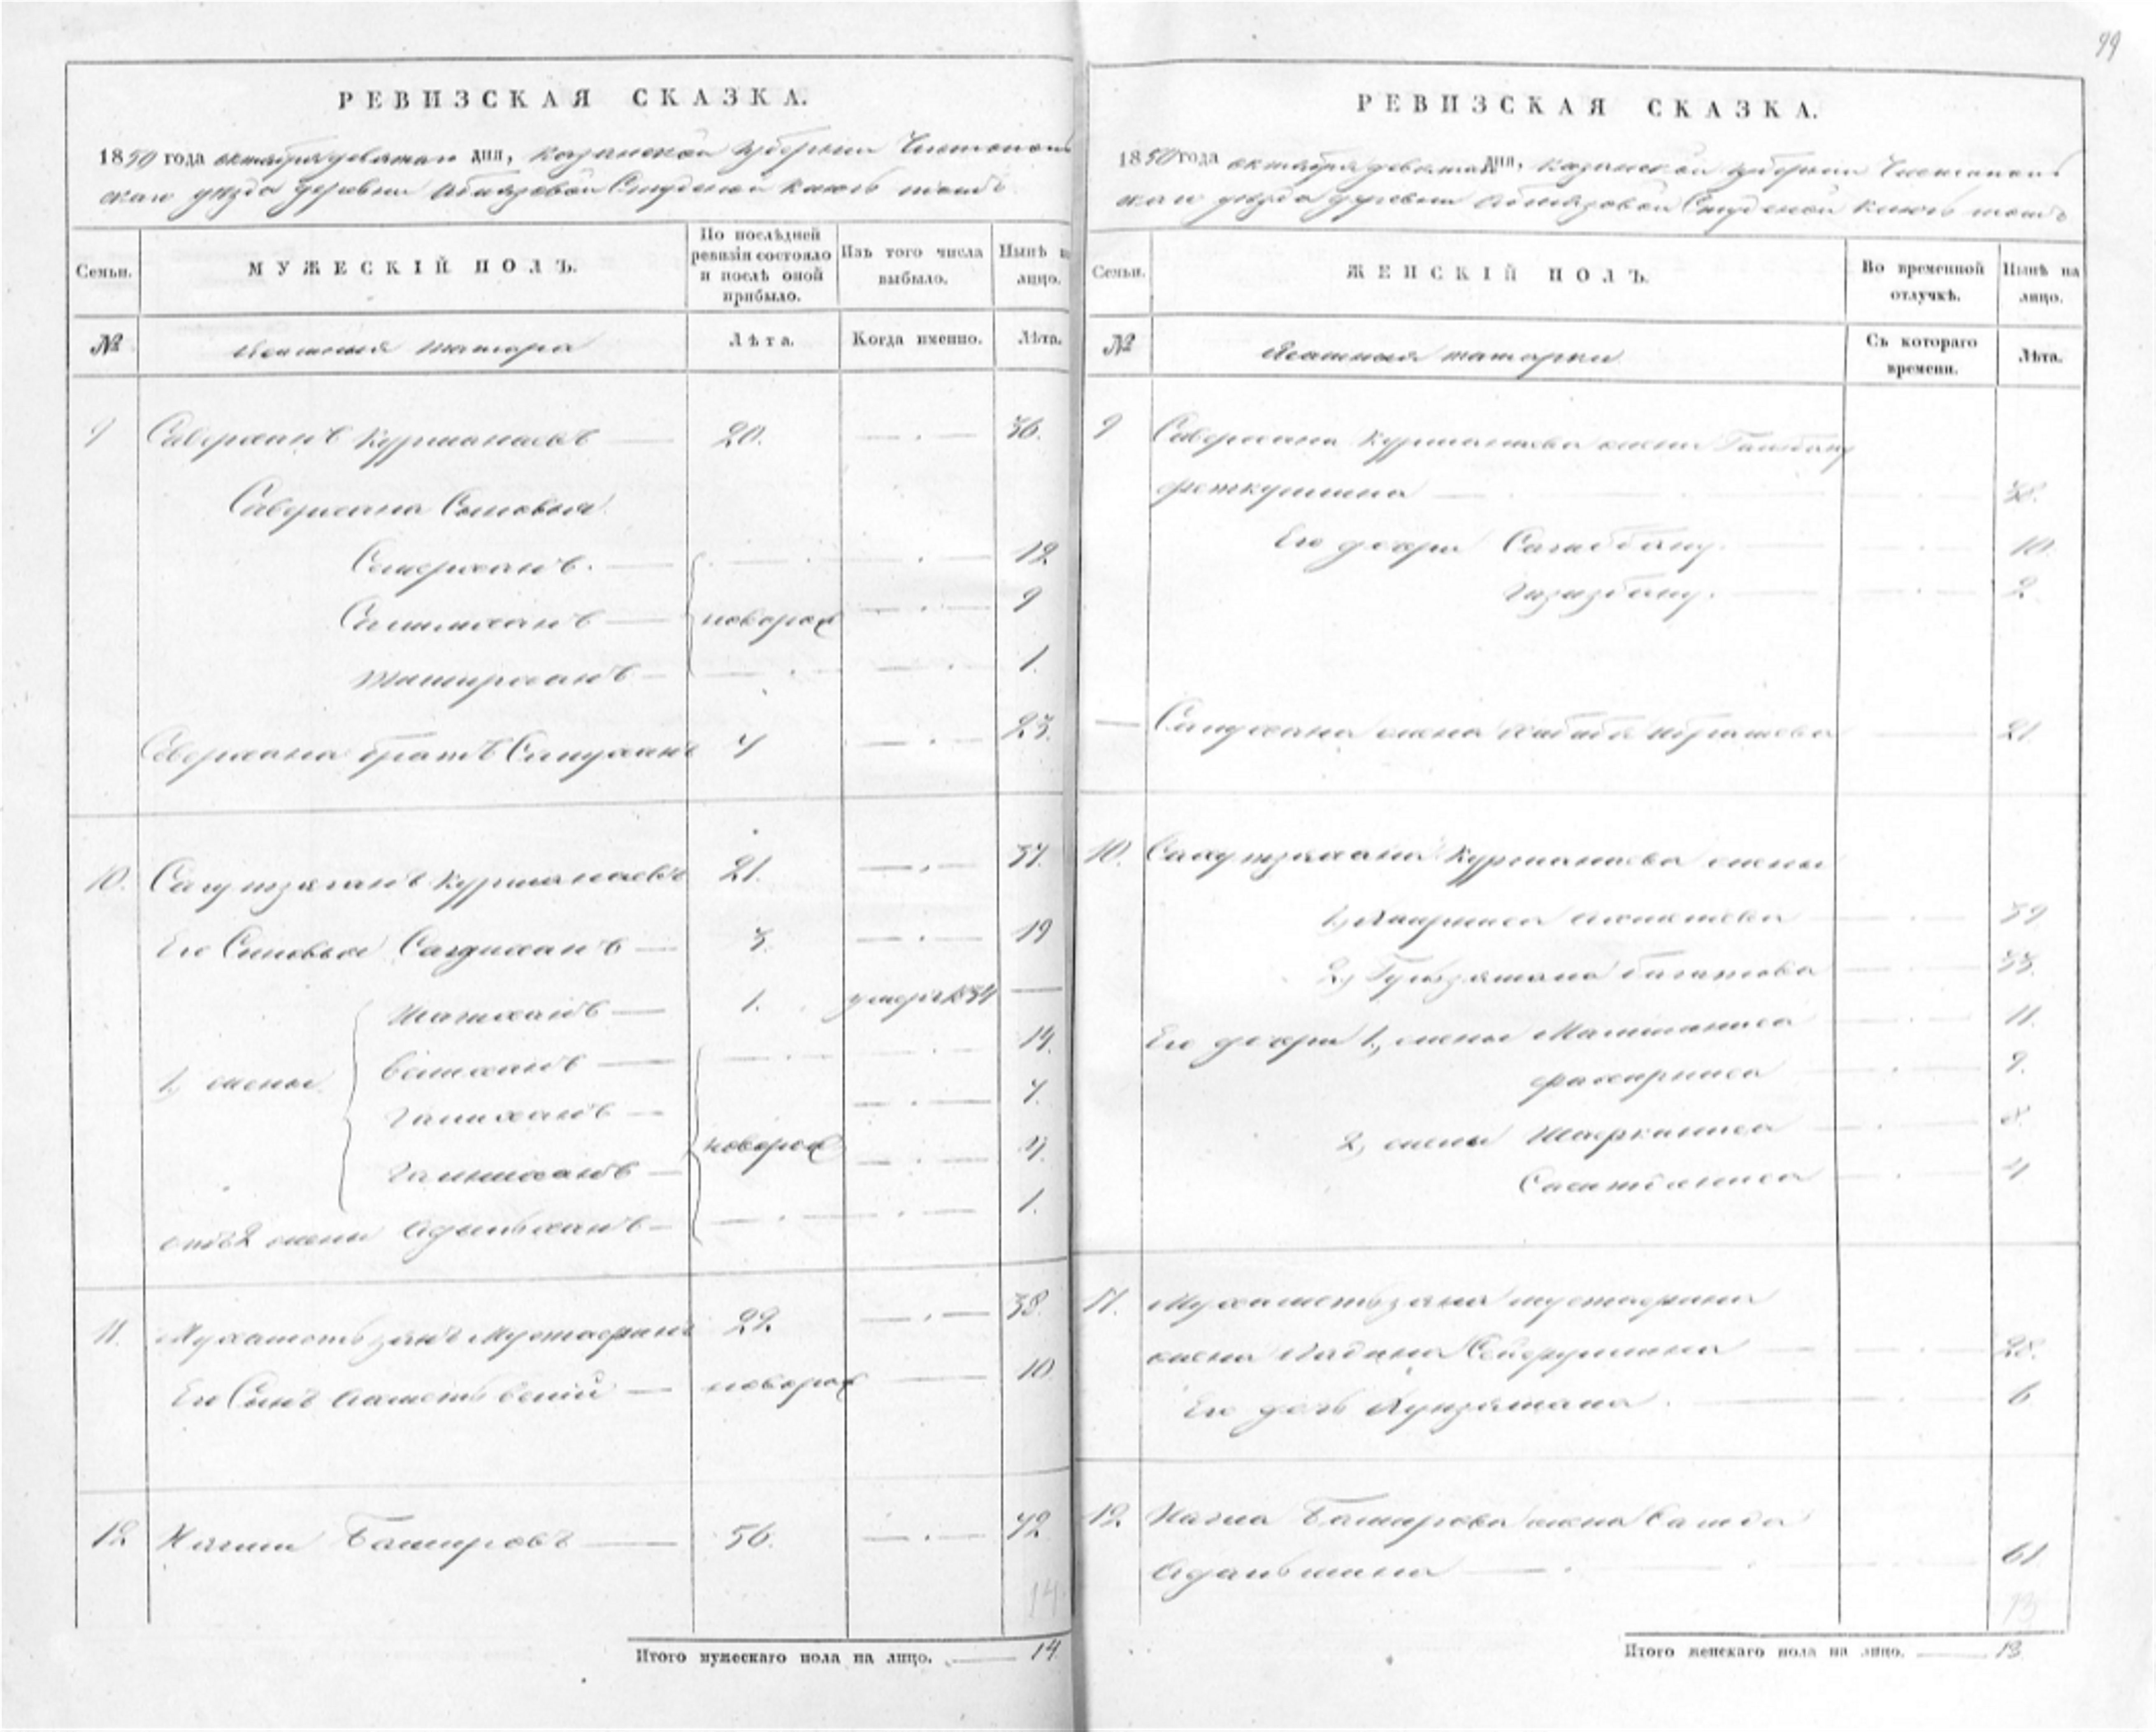 99
РЕВИЗСКАЯ СКАЗКА.
1850 года октября девятаго дня, Казанской губернии Чистополь
скаго уезда деревни Аблязовой Студеной Ключь тожъ
Семьи.
МУЖЕСКІЙ ПОЛЪ.
По послѣдней ревизіи состояло и послѣ оной прибыло.
Изъ того числа выбыло.
Нынѣ на лицо.
№
Ясашныя татара
Лѣта.
Когда именно.
Лѣта.
9 Саверханъ Курманаевъ 20. 36.
Саверхана Сыновья
Семерханъ. 12
Салимханъ новорож 9
Таштирханъ 1.
Саверхана братъ Сапуханъ 7 23.
10. Сагутзяганъ Курманаевъ 21. 37.
Его Сыновья Сагдиханъ 3. 19
Шагиханъ 1. умеръ 1834
1, жены Велиханъ 14.
Галиханъ 7.
новорож
Галимханъ 4.
отъ 2 жены Адильханъ 1.
11. Мухаметьзянъ Мустафинъ 22 38.
Его Сынъ Ахметь Велий новорож 10
12 Нагим Башировъ 56. 72
14
Итого мужескаго пола на лицо. 14
РЕВИЗСКАЯ СКАЗКА.
1850 года октября девятаго дня, Казанской губернии Чистополь
скаго уезда деревни Аблязовой Студеной Ключь тожъ
Семьи.
ЖЕНСКІЙ ПОЛЪ.
Во временной отлучкѣ.
Нынѣ на лицо.
№
Ясашныя татарки
Съ котораго времени.
Лѣта.
9 Саверхана Курманаева жена
Феткуллина 38.
Его дочери Сагидбану. 10.
Газизбану. 2
Сапухана жена Хабиба Ибрашева 21
10. Сагутзяхана Курманаева жены
1, 39
2, Гульзямала Багатова 33.
Его дочери 1, жены Малшаниса 11.
Фахарниса 9.
2, жены 8
4
11. Мухаметьзяна Мустафина
жена Мадина Сейфуллина 28.
Его дочь Кунзямала. 6
12. Нагима Баширова жена Саида
Адильшина 61
13
Итого женскаго пола на лицо. 13